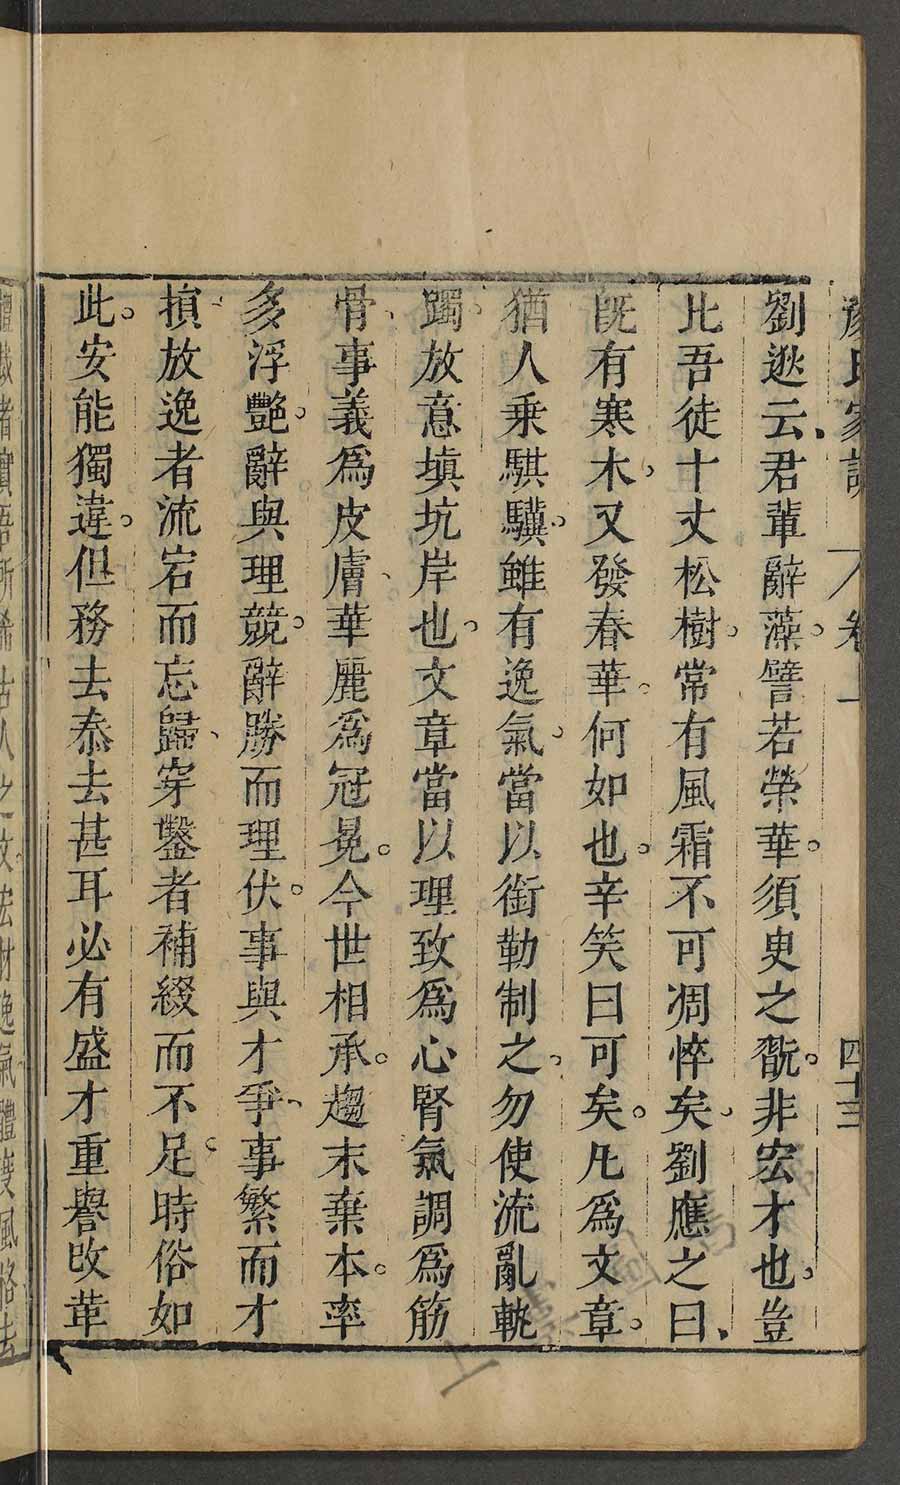 顏氏家訓 卷上 四十三
劉逖云君輩辭藻譬若榮華須臾之翫非宏才也豈
比吾徒十丈松樹常有風霜不可凋悴矣劉應之曰
旣有寒木又發春華何如也辛笑曰可矣凡爲文章
猶人乘騏驥雖有逸氣當以銜勒制之勿使流亂軌
躅放意填坑岸也文章當以理致爲心腎氣調爲筋
骨事義爲皮膚華麗爲冠冕今世相承趨末棄本率
多浮艷辭與理競辭勝而理伏事與才爭事繁而才
損放逸者流宕而忘歸穿鑿者補綴而不足時俗如
此安能獨違但務去泰去甚耳必有盛才重譽改革
體裁者實吾所希古人之文宏材逸氣體度風格去